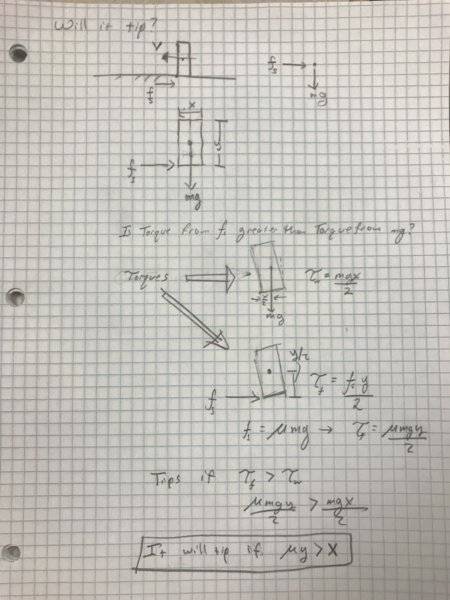 Will it tip?
v
f_s
f_s
mg
x
y
f_s
mg
Is Torque from f_s greater than Torque from mg?
Torques
x/2
mg
τ_w = mgx/2
y/2
f_s
τ_f = f_s y/2
f_s = μmg → τ_f = μmgy/2
Tips if τ_f > τ_w
μmgy/2 > mgx/2
It will tip if: μy > x